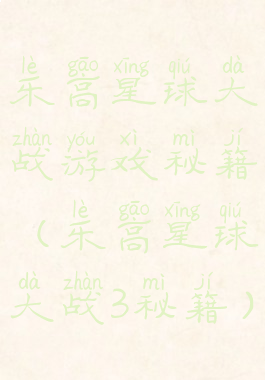 lè gāo xīng qiú dà
乐高星球大
zhàn yóu xì mì jí
战游戏秘籍
lè gāo xīng qiú
（乐高星球
dà zhàn mì jí
大战3秘籍）